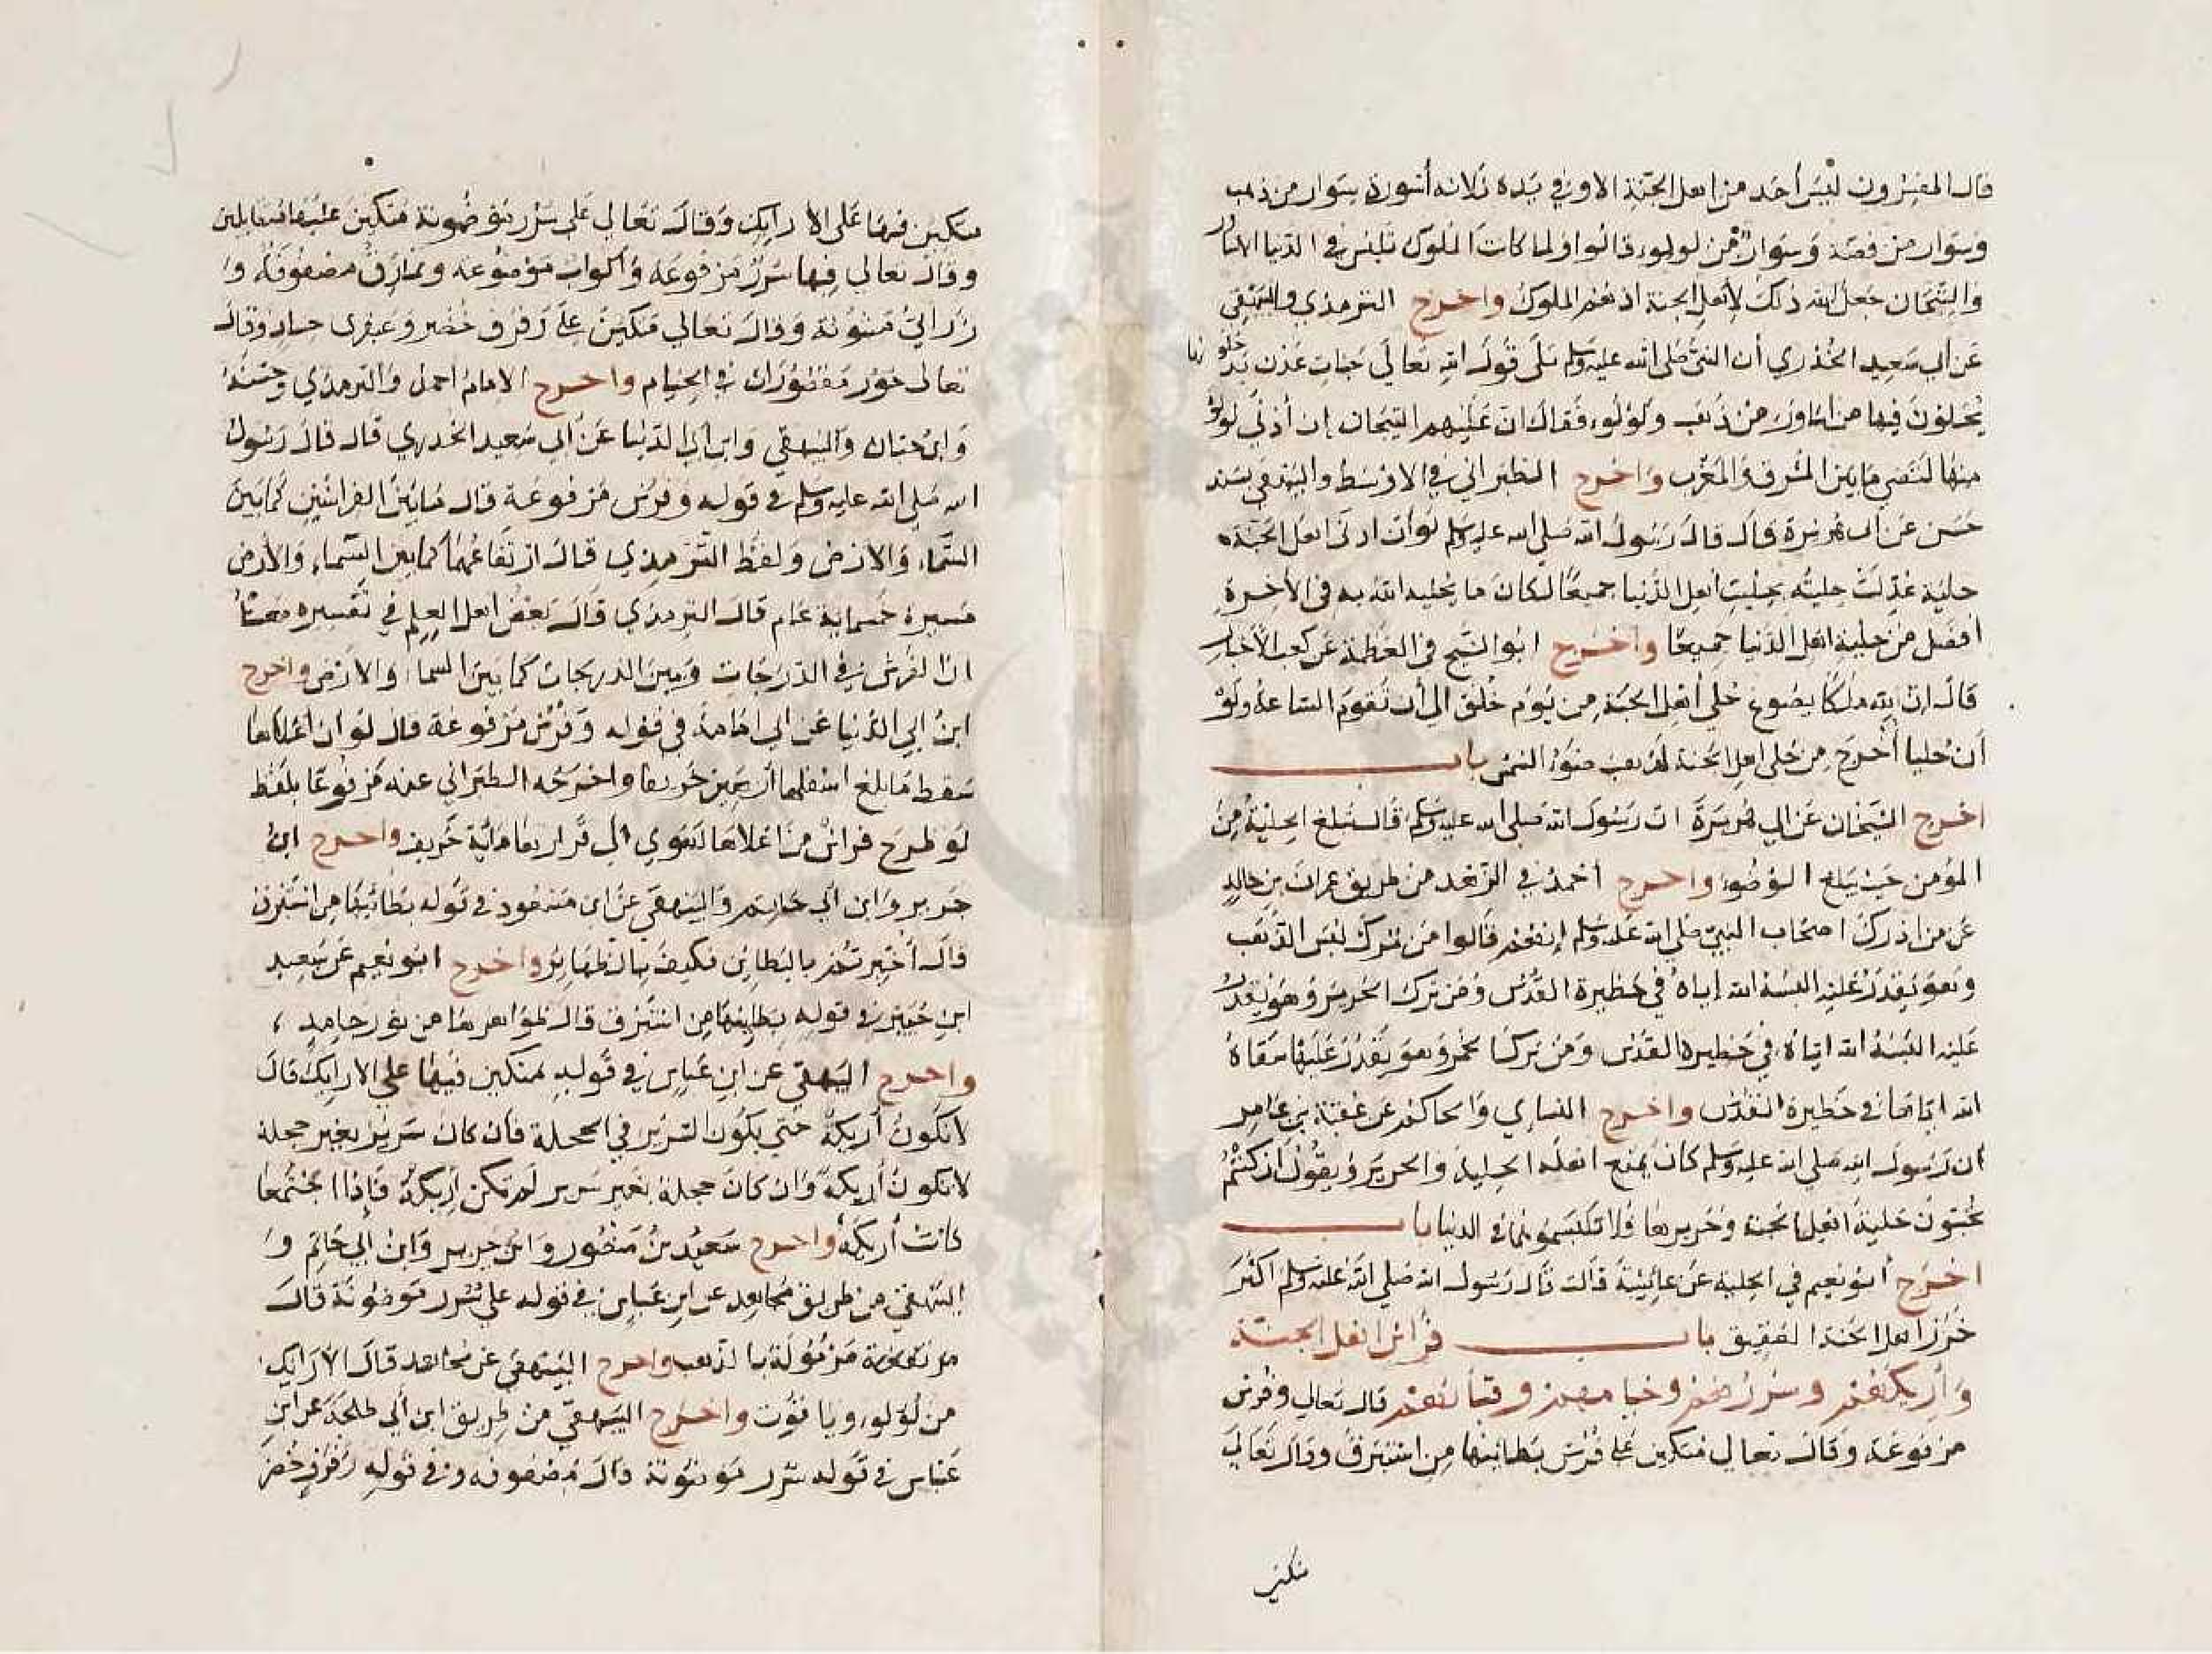 قال المفسرون ليس أحد من اهل الجنة الا وفي يده ثلاثة أسورة سوار من ذهب
وسوار من فضة وسوار من لولو، قالوا ولما كانت الملوك تلبس في الدنيا الاساور
والتيجان جعل الله ذلك لأهل الجنة اذ هم الملوك واخرج الترمذي والبيهقي
عن ابي سعيد الخدري أن النبي صلى الله عليه وسلم تلى قول الله تعالى جنات عدن يدخلونها
يحلون فيها من اساور من ذهب ولؤلؤ، فقال ان عليهم التيجان إن أدنى لولؤ
منها لتضي ما بين المشرق والمغرب واخرج الطبراني في الاوسط والبيهقي بسند
حسن عن ابي هريرة قال قال رسول الله صلى الله عليه وسلم لو أن ادنى اهل الجنة
حلية عدلت حليته بحلية أهل الدنيا جميعا لكان ما يحليه الله به في الآخرة
أفضل من حلية اهل الدنيا جميعا واخرج ابو الشيخ في العظمة عن كعب الأحبار
قال ان لله ملكا يصوغ حلي أهل الجنة من يوم خلق الى أن تقوم الساعة ولو
أن حليا أخرج من حلي اهل الجنة لذهب ضوء الشمس باب
اخرج الشيخان عن ابي هريرة ان رسول الله صلى الله عليه وسلم قال تبلغ الحلية من
المؤمن حيث يبلغ الوضوء واخرج أحمد في الزهد من طريق عمران بن خالد
عن من ادرك اصحاب النبي صلى الله عليه وسلم إنهم قالوا من ترك لبس الذهب
وهو يقدر عليه البسه الله إياه في حظيرة القدس ومن ترك الحرير وهو يقدر
عليه البسه الله اياه في حظيرة القدس ومن ترك الخمر وهو يقدر عليها سقاه
الله اياها في حظيرة القدس واخرج النساي والحاكم عن عقبة بن عامر
ان رسول الله صلى الله عليه وسلم كان يمنع اهله الحلية والحرير ويقول ان كنتم
تحبون حلية اهل الجنة وحريرها فلا تلبسوهما في الدنيا باب
اخرج أبو نعيم في الحلية عن عائشة قالت قال رسول الله صلى الله عليه وسلم اكثر
خرز اهل الجنة العقيق باب فراش اهل الجنة
وأريكتهم وسررهم وخيامهم وقبابهم قال تعالى وفرش
مرفوعة وقال تعالى متكين على فرش بطائنها من استبرق وقال تعالى
متكين
متكين فيها على الارايك وقال تعالى على سرر موضونة متكين عليها متقابلين
وقال تعالى فيها سرر مرفوعة وأكواب موضوعة ونمارق مصفوفة و
زرابي مبثوثة وقال تعالى متكين على رفرف خضر وعبقرى حسان وقال
تعالى حور مقصورات في الخيام واخرج الامام احمد والترمذي وحسنه
وابن حبان والبيهقي وابن ابي الدنيا عن ابي سعيد الخدري قال قال رسول
الله صلى الله عليه وسلم في قوله وفرش مرفوعة قال ما بين الفراشين كما بين
السماء والارض ولفظ الترمذي قال ارتفاعهما كما بين السماء والأرض
مسيرة خمسماية عام قال الترمذي قال بعض اهل العلم في تفسيره معناه
ان الفرش في الدرجات وبين الدرجات كما بين السماء والارض واخرج
ابن ابي الدنيا عن ابي امامة في قوله وفرش مرفوعة قال لو ان اعلاها
سقط ما بلغ اسفلها أربعين خريفا واخرجه الطبراني عنه مرفوعا بلفظ
لو طرح فراش من اعلاها لهوي الى قرارها ماية خريف واخرج ابن
جرير وابن ابي حاتم والبيهقي عن ابن مسعود في قوله بطائنها من استبرق
قال أخبرتم بالبطاين فكيف بالظهاير واخرج ابو نعيم عن سعيد
ابن جبير في قوله بطاينها من استبرق قال ظواهرها من نور جامد ،
واخرج البيهقي عن ابن عباس في قوله متكين فيها على الارايك قال
لا تكون أريكة حتى يكون السرير في الحجلة فان كان سرير بغير حجلة
لا تكون أريكة وان كان حجلة بغير سرير لم تكن أريكة فإذا اجتمعا
كانت أريكة واخرج سعيد بن منصور وابن جرير وابن ابي حاتم و
البيهقي من طريق مجاهد عن ابن عباس في قوله على سرر موضونة قال
مرمولة بالذهب واخرج البيهقي عن مجاهد قال الارايك
من لؤلو، وياقوت واخرج البيهقي من طريق ابن أبي طلحة عن ابن
عباس في قوله سرر موضونة قال مصفوفة وفي قوله رفرف خضر